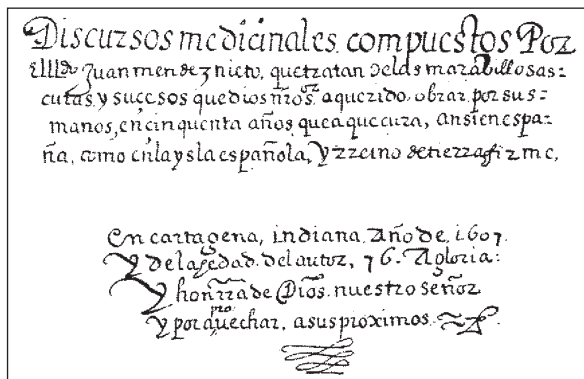 Discursos medicinales. compuestos Por
El lldo Juan mendez nieto, que tratan de las marabillosas=
curas, y sucesos que dios nro sor a querido. obrar por sus=
manos, en cinquenta años que a que cura, ansi en espa=
ña, como en la ysla española, y rreino de tierra firme,
En cartagena, indiana. Año de, 1607.
Y de la hedad. del autor, 76. A gloria:
Y honrra de Dios. nuestro señor
y por aprouechar. a sus proximos.